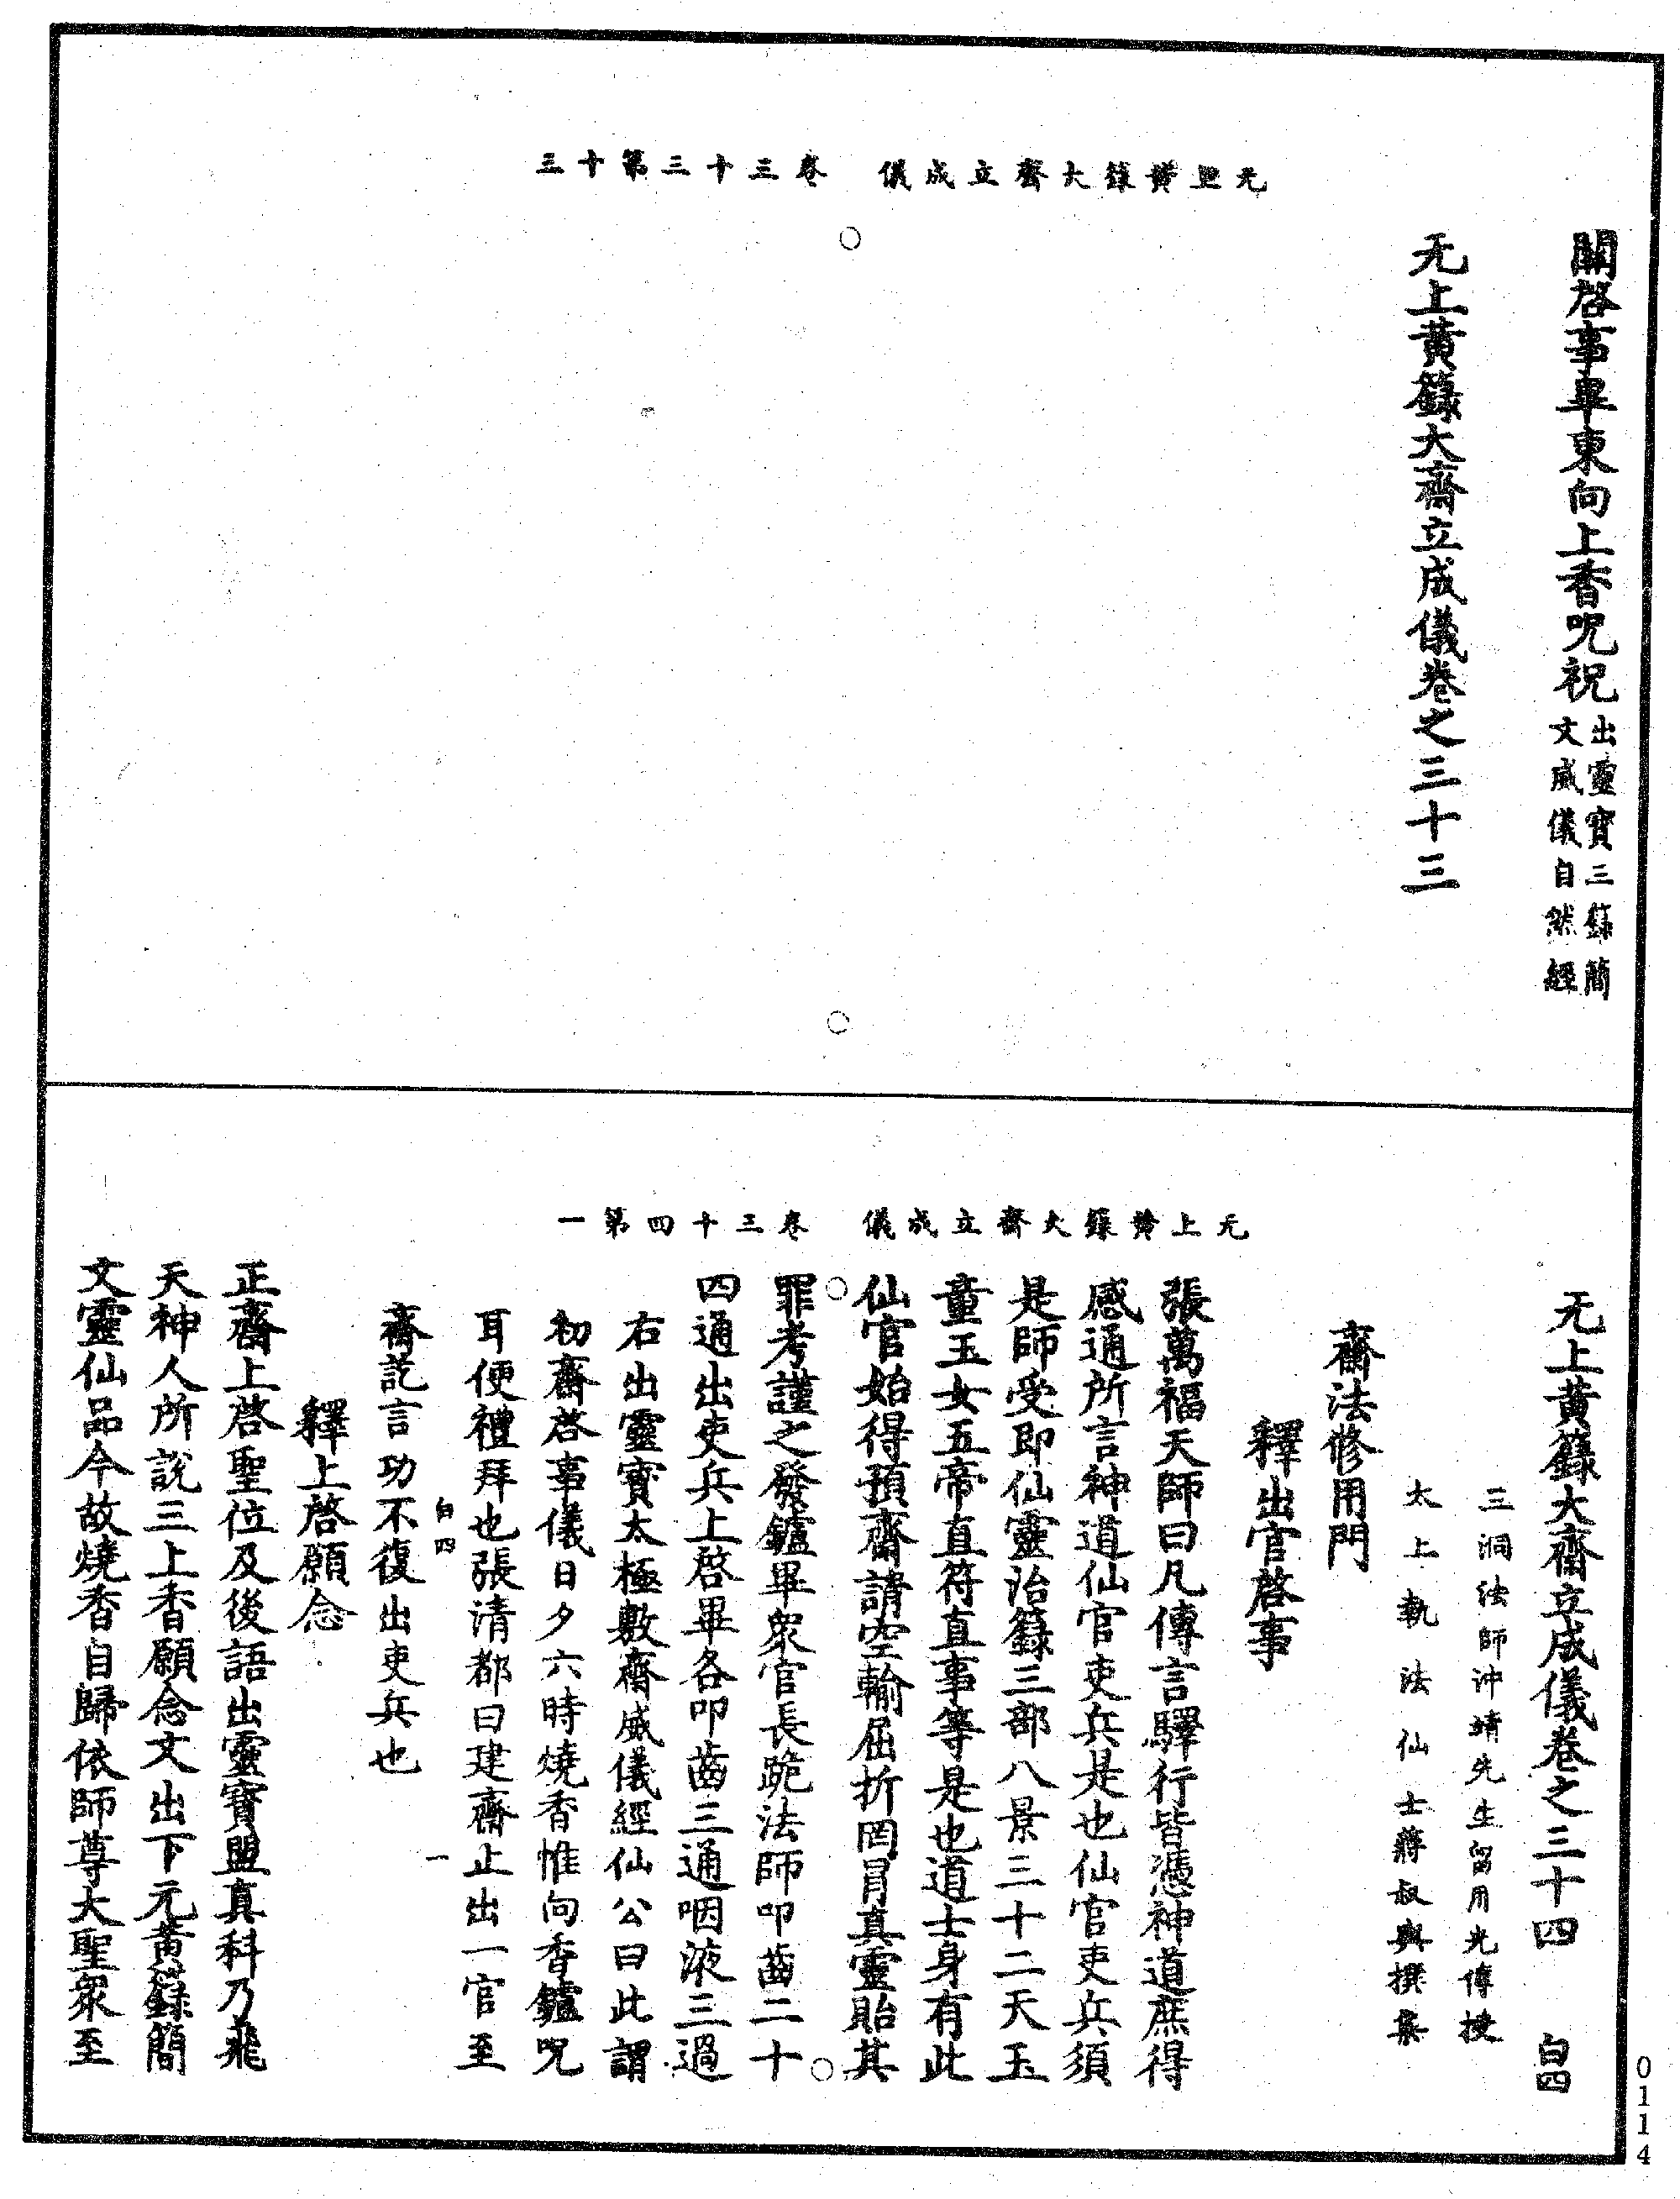 无上黃籙大齋立成儀 卷三十三第十三
關啓事畢東向上香呪祝出靈寶三籙簡文威儀自然經
无上黃籙大齋立成儀卷之三十三
无上黃籙大齋立成儀 卷三十四第一
无上黃籙大齋立成儀卷之三十四 白四
三洞法師沖靖先生留用光傳授
太上執法仙士蔣叔輿撰集
齋法修用門
釋出官啓事
張萬福天師曰凡傳言驛行皆憑神道庶得
感通所言神道仙官吏兵是也仙官吏兵須
是師受即仙靈治籙三部八景三十二天玉
童玉女五帝直符直事等是也道士身有此
仙官始得預齋請空輸屈折罔冐真靈貽其
罪考謹之發鑪畢衆官長跪法師叩齒二十
四通出吏兵上啓畢各叩齒三通咽液三過
右出靈寶太極敷齋威儀經仙公曰此謂
初齋啓事儀日夕六時燒香惟向香鑪呪
耳便禮拜也張清都曰建齋止出一官至
白四 一
齋訖言功不復出吏兵也
釋上啓願念
正齋上啓聖位及後語出靈寶盟真科乃飛
天神人所說三上香願念文出下元黃籙簡
文靈仙品今故燒香自歸依師尊大聖衆至
0114